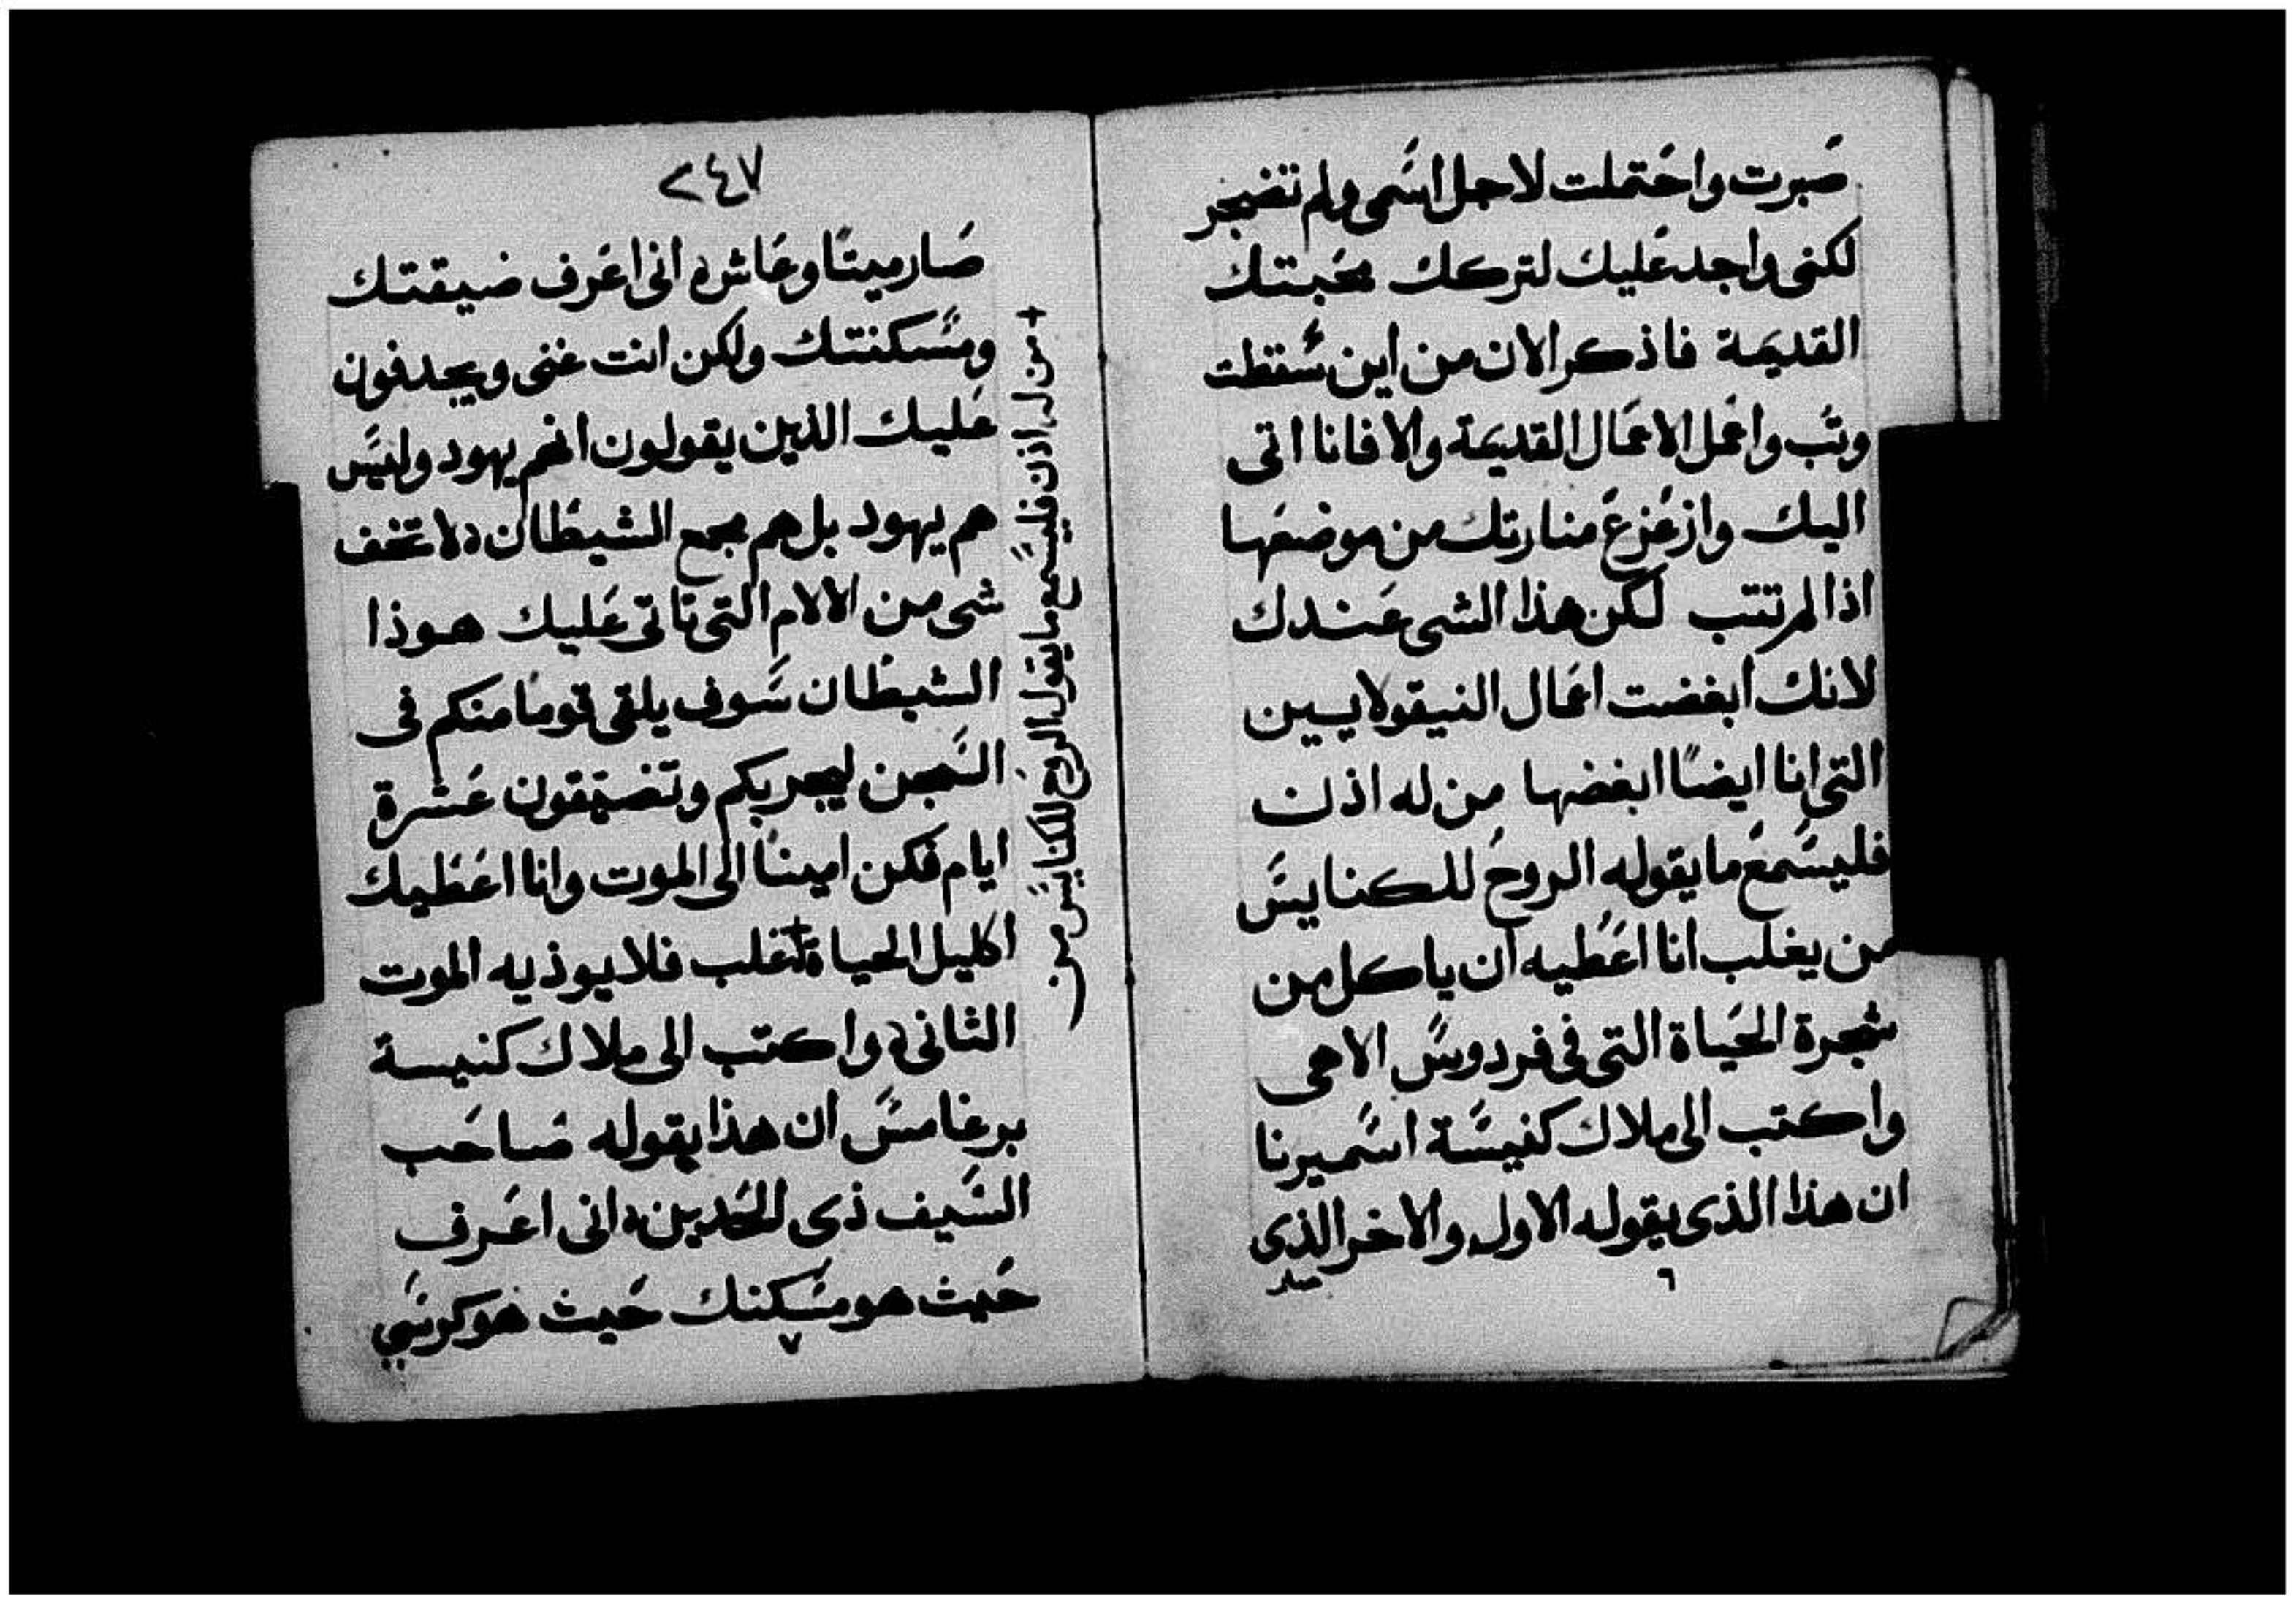 صبرت واحتملت لاجل اسمى ولم تضجر
لكنى واجد عليك لتركك محبتك
القديمة فاذكر الان من اين سقطت
وتب واعمل الاعمال القديمة والا فانا اتى
اليك وازعزع منارتك من موضعها
اذا لم تتب لكن هذا الشى عندك
لانك ابغضت اعمال النيقولايسين
التى انا ايضًا ابغضها من له اذن
فليسمع ما يقوله الروح للكنايس
من يغلب انا اعطيه ان ياكل من
شجرة الحياة التى فى فردوس الاهى
واكتب الى ملاك كنيسة اسميرنا
ان هذا الذى يقوله الاول والاخر الذى
صار
٦
٢٤٧
صار ميتًا وعاش انى اعرف ضيقتك
ومسكنتك ولكن انت غنى ويجدفون
عليك الذين يقولون انهم يهود وليس
هم يهود بل هم مجمع الشيطان لا تخف
شى من الالام التى تاتى عليك هوذا
الشيطان سوف يلقى قومًا منكم فى
السجن ليجربكم وتضيقون عشرة
ايام فكن امينًا الى الموت وانا اعطيك
اكليل الحياة + غلب فلا يوذيه الموت
الثانى واكتب الى ملاك كنيسة
برغامس ان هذا يقوله صاحب
السيف ذى الحدين انى اعرف
حيث هو مسكنك حيث هو كرسي
٧
+ من له اذن فليسمع ما يقول الروح للكنايس من